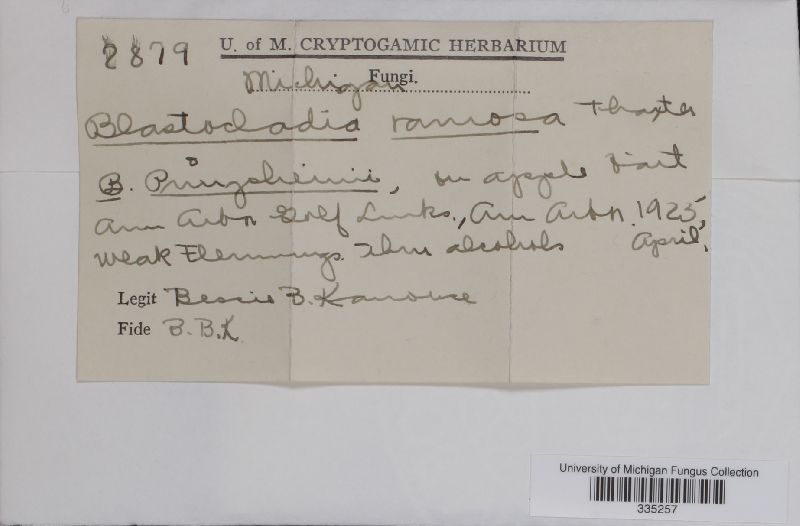 2879
U. of M. CRYPTOGAMIC HERBARIUM
Michigan Fungi.
Blastocladia ramosa Thaxter
B. Pringsheimii, on apple bait
Ann Arbor Golf Links., Ann Arbor. 1925,
April,
weak Flemmings. Thru alcohols
Legit Bessie B. Kanouse
Fide B.B.K.
University of Michigan Fungus Collection
335257